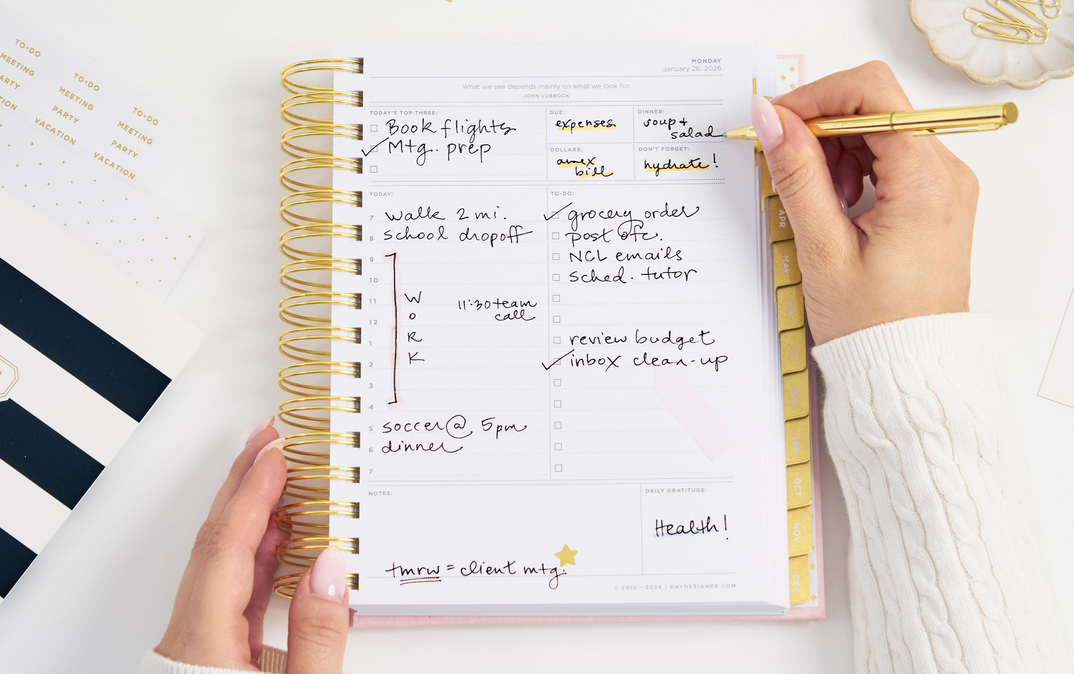 TO•DO
MEETING
PARTY
VACATION
TO•DO
MEETING
PARTY
VACATION
TO•DO
MEETING
PARTY
VACATION
MONDAY
January 26, 2026
What we see depends mainly on what we look for.
JOHN LUBBOCK
TODAY'S TOP THREE:
Book flights
Mtg. prep
DUE:
expenses
DINNER:
soup +
salad
DOLLARS:
amex
bill
DON'T FORGET:
hydrate!
TODAY:
7 walk 2 mi.
8 school dropoff
9
10
11 W 11:30 team
O call
12
1 R
2 K
3
4
5 soccer @ 5pm
6 dinner
7
TO-DO:
grocery order
post ofc.
NCL emails
sched. tutor
review budget
inbox clean-up
NOTES:
tmrw = client mtg.
DAILY GRATITUDE:
Health!
© 2012 - 2024 | DAYDESIGNER.COM
APR
MAY
OCT
NOV